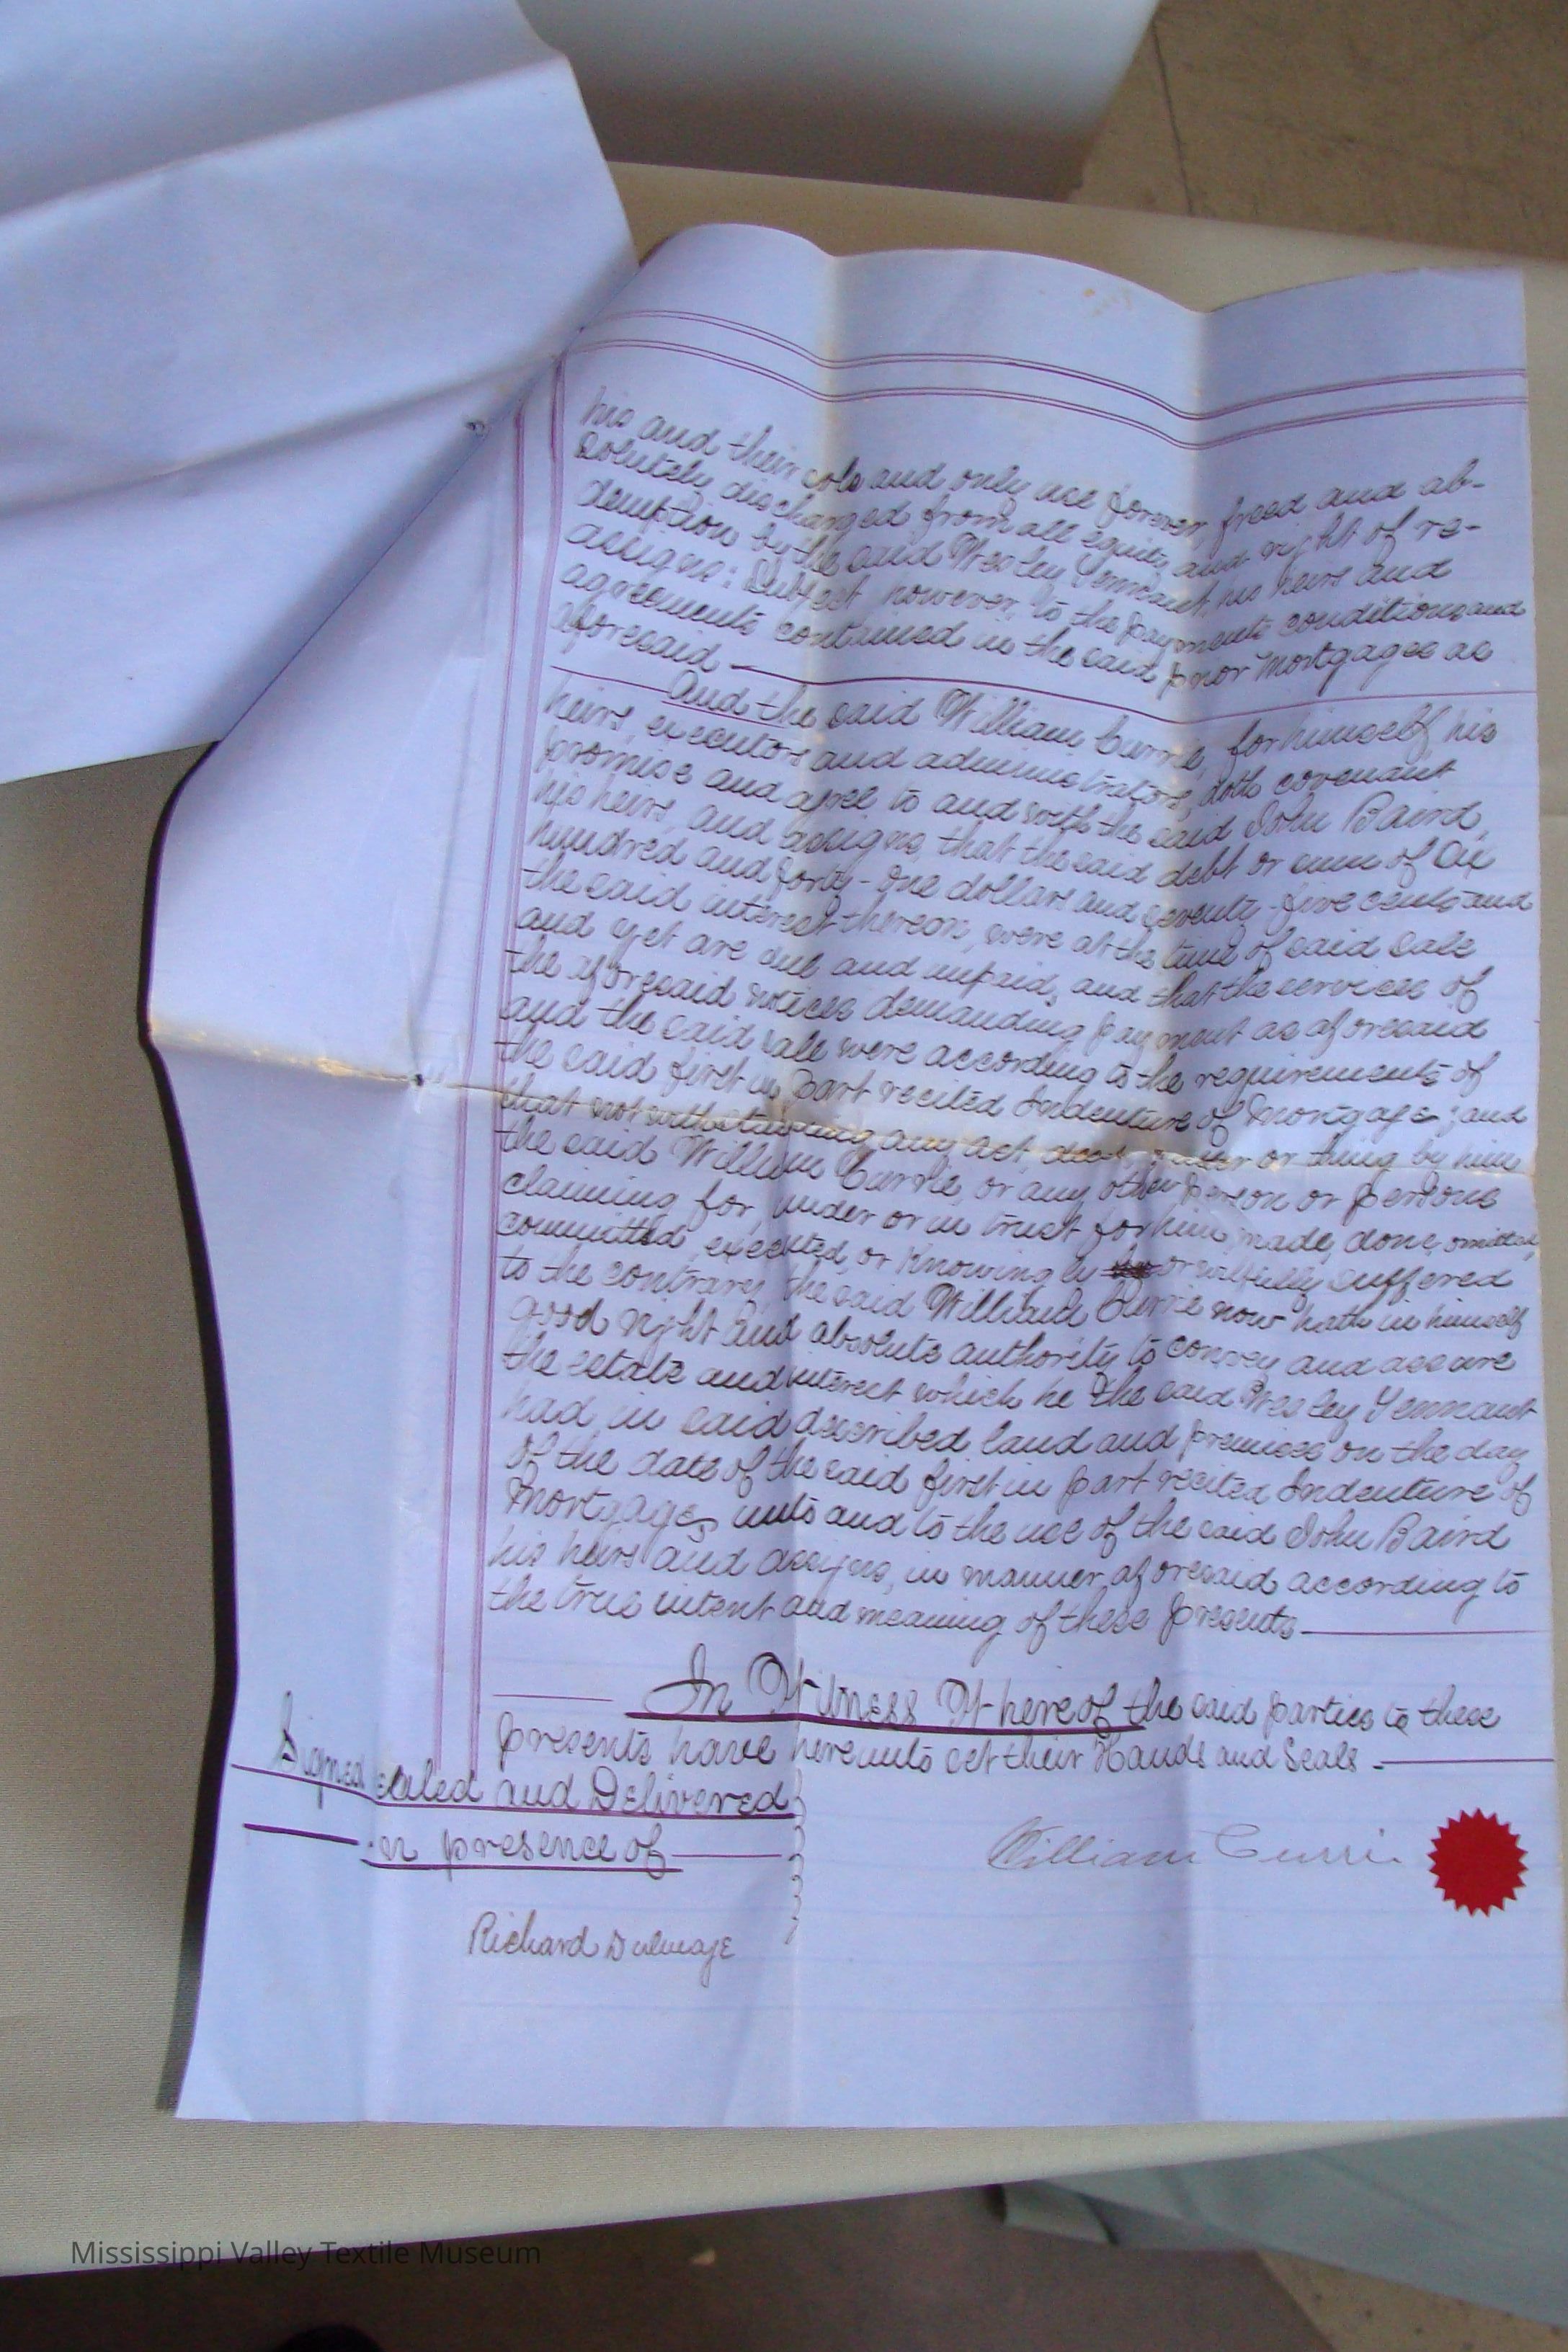 his and their sole and only use forever, freed and ab-
solutely discharged from all equity and right of re-
demption by the said Wesley Tennant, his heirs and
assigns: Subject however, to the payments conditions and
agreements contained in the said prior Mortgages as
aforesaid
And the said William Currie, for himself his
heirs, executors and administrators, doth covenant
promise and agree to and with the said John Baird,
his heirs, and assigns, that the said debt or sum of Six
hundred and forty-one dollars and seventy-five cents and
the said interest thereon, were at the time of said sale
and yet are due and unpaid, and that the services of
the aforesaid notices demanding payment as aforesaid
and the said sale were according to the requirements of
the said first in part recited Indenture of Mortgage; and
that notwithstanding any act, deed, matter or thing by him
the said William Currie, or any other person or persons
claiming for, under or in trust for him, made, done, omitted,
committed, executed, or knowingly or wilfully suffered
to the contrary, the said William Currie now hath in himself
good right and absolute authority to convey and assure
the estate and interest which he the said Wesley Tennant
had in said described land and premises on the day
of the date of the said first in part recited Indenture of
Mortgage, unto and to the use of the said John Baird
his heirs and assigns, in manner aforesaid according to
the true intent and meaning of these presents.
In Witness Whereof the said parties to these
presents have hereunto set their Hands and Seals.
Signed sealed and Delivered
in presence of
William Currie
Richard Dulmage
Mississippi Valley Textile Museum